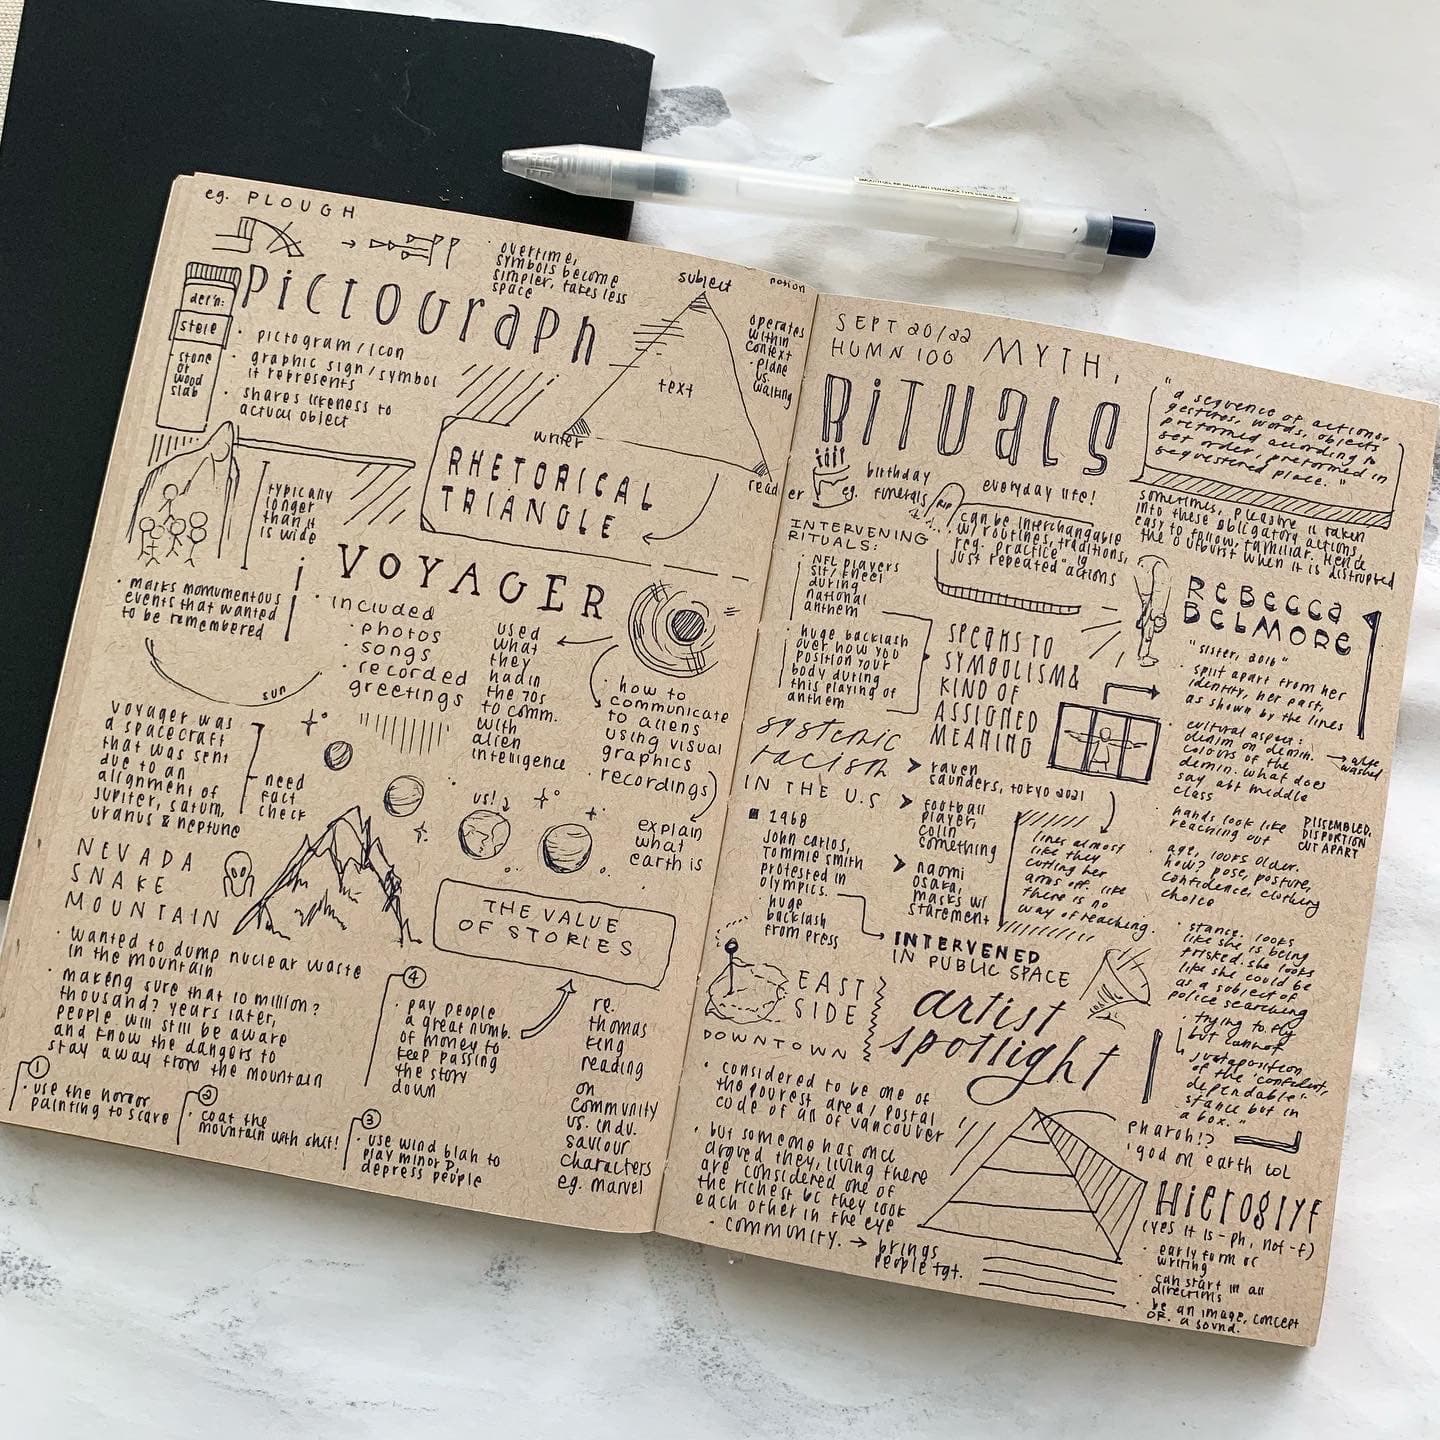 eg. PLOUGH
overtime,
symbols become
simpler, takes less
space
PictoGraph
def'n:
stele
- stone
or
wood
slab
• pictogram/icon
• graphic sign/symbol
it represents
• shares likeness to
actual object
subject
notion
text
writer
reader
operates
within
context
• plane
vs.
walking
RHETORICAL
TRIANGLE
typically
longer
than it
is wide
• marks momumentous
events that wanted
to be remembered
VOYAGER
• included
• photos
• songs
• recorded
greetings
used
what
they
had in
the 70s
to comm.
with
alien
intelligence
• how to
communicate
to aliens
using visual
graphics
• recordings
explain
what
earth is
sun
us!
voyager was
a spacecraft
that was sent
due to an
alignment of
jupiter, saturn,
uranus & neptune
need
fact
check
NEVADA
SNAKE
MOUNTAIN
• wanted to dump nuclear waste
in the mountain
• making sure that 10 million?
thousand? years later,
people will still be aware
and know the dangers to
stay away from the mountain
1
• use the horror
painting to scare
2
• coat the
mountain with shit!
3
• use wind blah to
play minor D,
depress people
4
• pay people
a great numb.
of money to
keep passing
the story
down
THE VALUE
OF STORIES
re.
thomas
king
reading
on
community
vs. indv.
saviour
characters
eg. marvel
SEPT 20/22
HUMN 100
MYTH,
RiTUALS
"a sequence of actions,
gestures, words, objects
preformed according to
set order, preformed in
sequestered place."
birthday
eg. funerals
RIP
everyday life!
can be interchangable
w/ routines, traditions,
reg. practice, ig
just repeated actions
sometimes, pleasure is taken
into these obligatory actions,
easy to follow, familiar. Hence
the outburst when it is disrupted
INTERVENING
RITUALS:
• NFL players
sit/kneel
during
national
anthem
• huge backlash
over how you
position your
body during
this playing of
anthem
SPEAKS TO
SYMBOLISM &
KIND OF
ASSIGNED
MEANING
systemic
racism
IN THE U.S
1968
John Carlos,
Tommie Smith
protested in
olympics.
• huge
backlash
from press
> raven
saunders, tokyo 2021
> football
player,
colin
something
> naomi
osaka,
masks w/
statement
INTERVENED
IN PUBLIC SPACE
REBECCA
BELMORE
"sister, 2010"
• split apart from her
identity, her past,
as shown by the lines
• cultural aspect:
denim on denim.
colours of the
denim. what does
say abt middle
class
washed
• hands look like
reaching out
DISSEMBLED,
DISPORTION
CUT APART
• age, looks older.
how? pose, posture,
confidence, clothing
choice
• lines almost
like they
cutting her
arms off. like
there is no
way of reaching.
• stance. looks
like she is being
frisked. she looks
like she could be
as a subject of
police searching
• trying to fly
but cannot
juxtaposition
of the 'confident,
dependable'
stance but in
a box."
artist
spotlight
EAST
SIDE
DOWNTOWN
• considered to be one of
the pourest area/postal
code of all of vancouver
• but someone has once
argued they, living there
are considered one of
the richest bc they look
each other in the eye
• community. → brings
people tgt.
pharoh!?
'god on earth' lol
Hieroglyf
(yes it is -ph, not -f)
• early form of
writing
• can start in all
directions
• be an image, concept
or a sound.